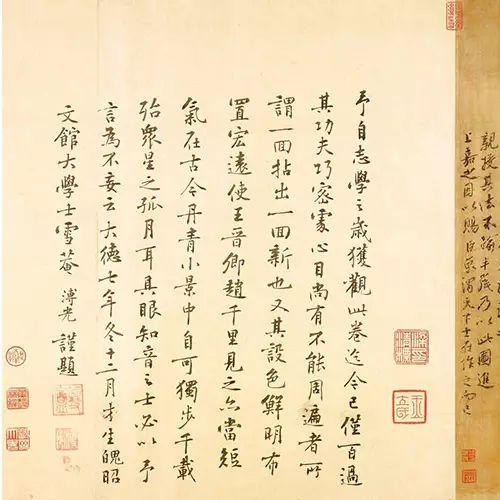 親授其法不踰半歲乃以此圖進
上嘉之因以賜臣京謂天下士在作之而已
予自志學之歲獲觀此卷迄今已僅百過
其功夫巧密處心目尚有不能周遍者所
謂一回拈出一回新也又其設色鮮明布
置宏遠使王晉卿趙千里見之亦當短
氣在古今丹青小景中自可獨步千載
殆眾星之孤月耳具眼知音之士必以予
言為不妄云大德七年冬十二月才生魄昭
文館大學士雪菴溥光謹題